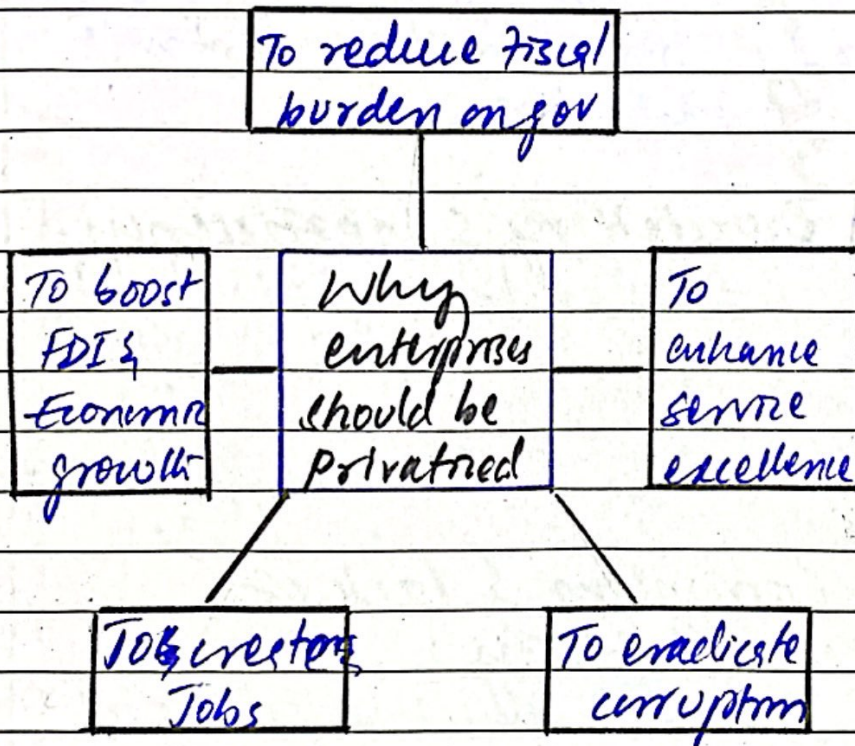 To reduce Fiscal
burden on gov
To boost
FDI &
Economic
growth
Why
enterprises
should be
Privatized
To
enhance
service
excellence
Jobs
To eradicate
corruption